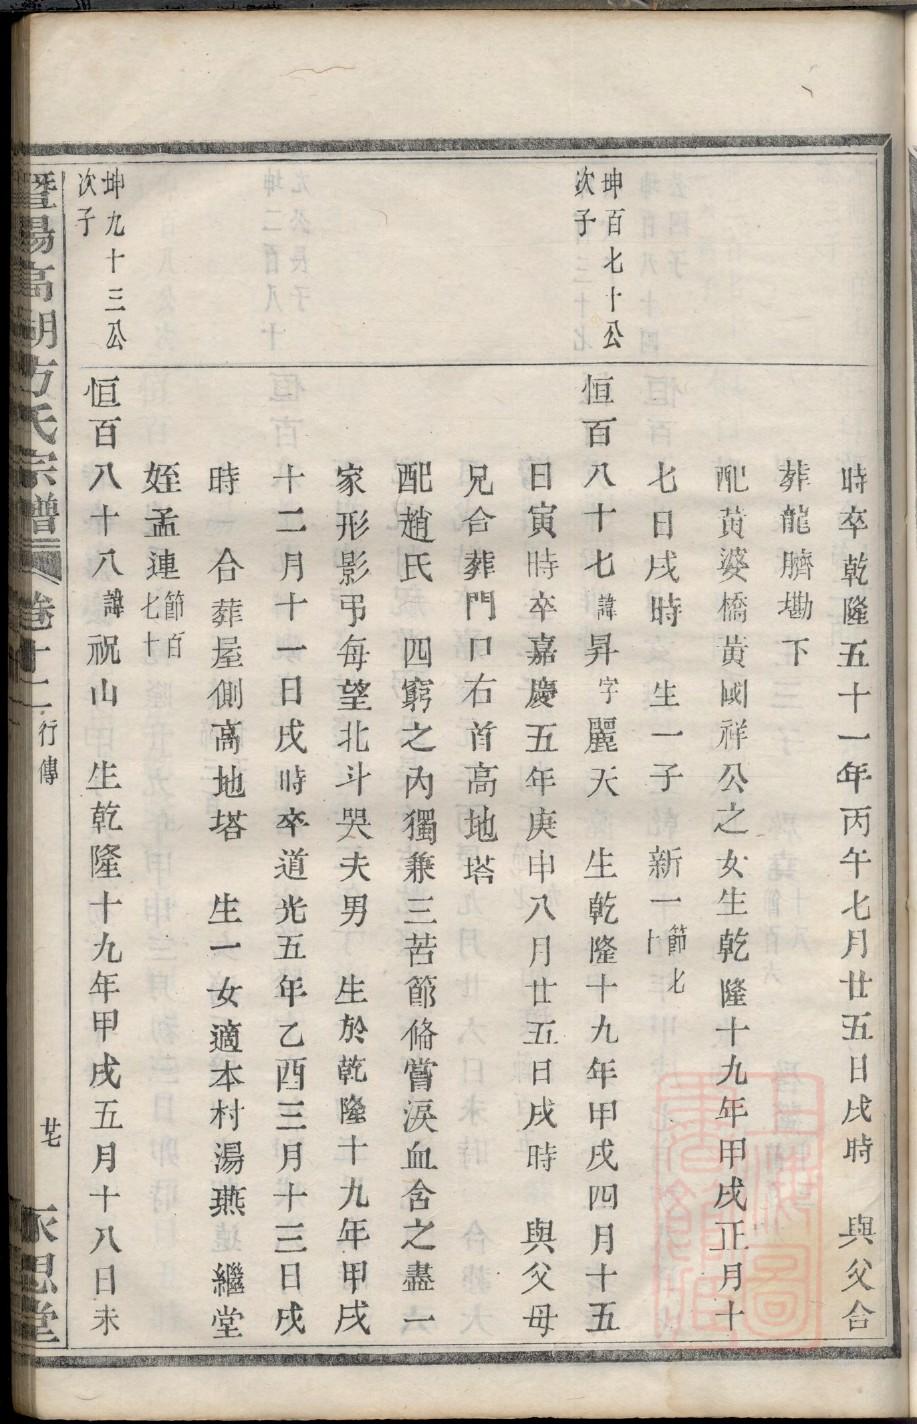 時卒乾隆五十一年丙午七月廿五日戌時　與父合
葬龍臍墈下
配黃婆橋黃國祥公之女生乾隆十九年甲戌正月十
七日戌時　生一子　新一節七十
坤百七十公次子
恒百八十七諱昇字麗天　生乾隆十九年甲戌四月十五
日寅時卒嘉慶五年庚申八月廿五日戌時　與父母
兄合葬門口右首高地塔
配趙氏　四窮之內獨兼三苦節偹嘗淚血含之盡一
家形影弔每望北斗哭夫男　生於乾隆十九年甲戌
十二月十一日戌時卒道光五年乙酉三月十三日戌
時　合葬屋側高地塔　生一女適本村湯燕　繼堂
姪孟連節百七十
坤九十三公次子
恒百八十八諱祝山　生乾隆十九年甲戌五月十八日未
暨陽高湖方氏宗譜　卷十二　行傳　廿七　永思堂